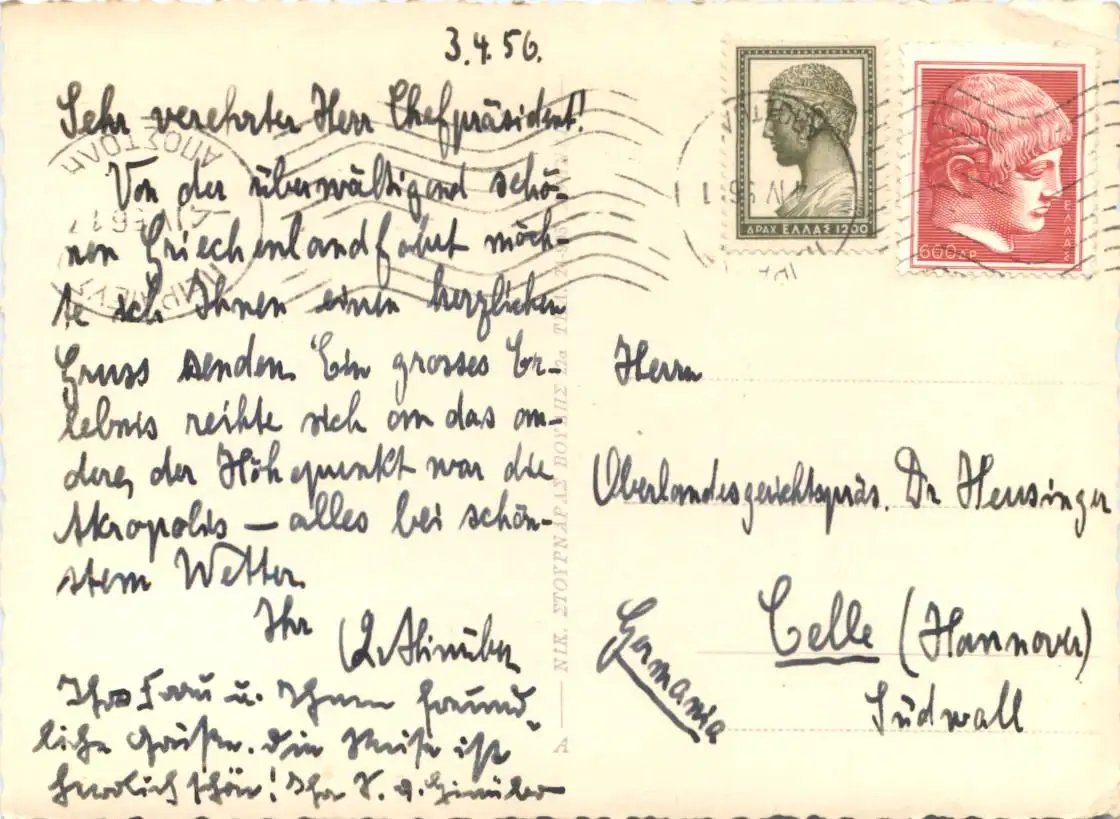 3.4.56.
Sehr verehrter Herr Chefpräsident!
Von der überwältigend schö-
nen Griechenlandfahrt möch-
te ich Ihnen einen herzlichen
Gruss senden. Ein grosses Er-
lebnis reihte sich an das an-
dere, der Höhepunkt war die
Akropolis — alles bei schön-
stem Wetter.
Ihr
Ihrer Frau u. Ihnen freund-
liche Grüße. Die Reise ist
herrlich schön! Ihr
ΔΡΑΧ. ΕΛΛΑΣ 1200
600 ΔΡ.
ΕΛΛΑΣ
ΑΠΟΣΤΟΛΗ
ΝΙΚ. ΣΤΟΥΡΝΑΡΑΣ ΒΟΥΛΗΣ
Herrn
Oberlandesgerichtspräs. Dr Heusinger
Celle (Hannover)
Südwall
Germania